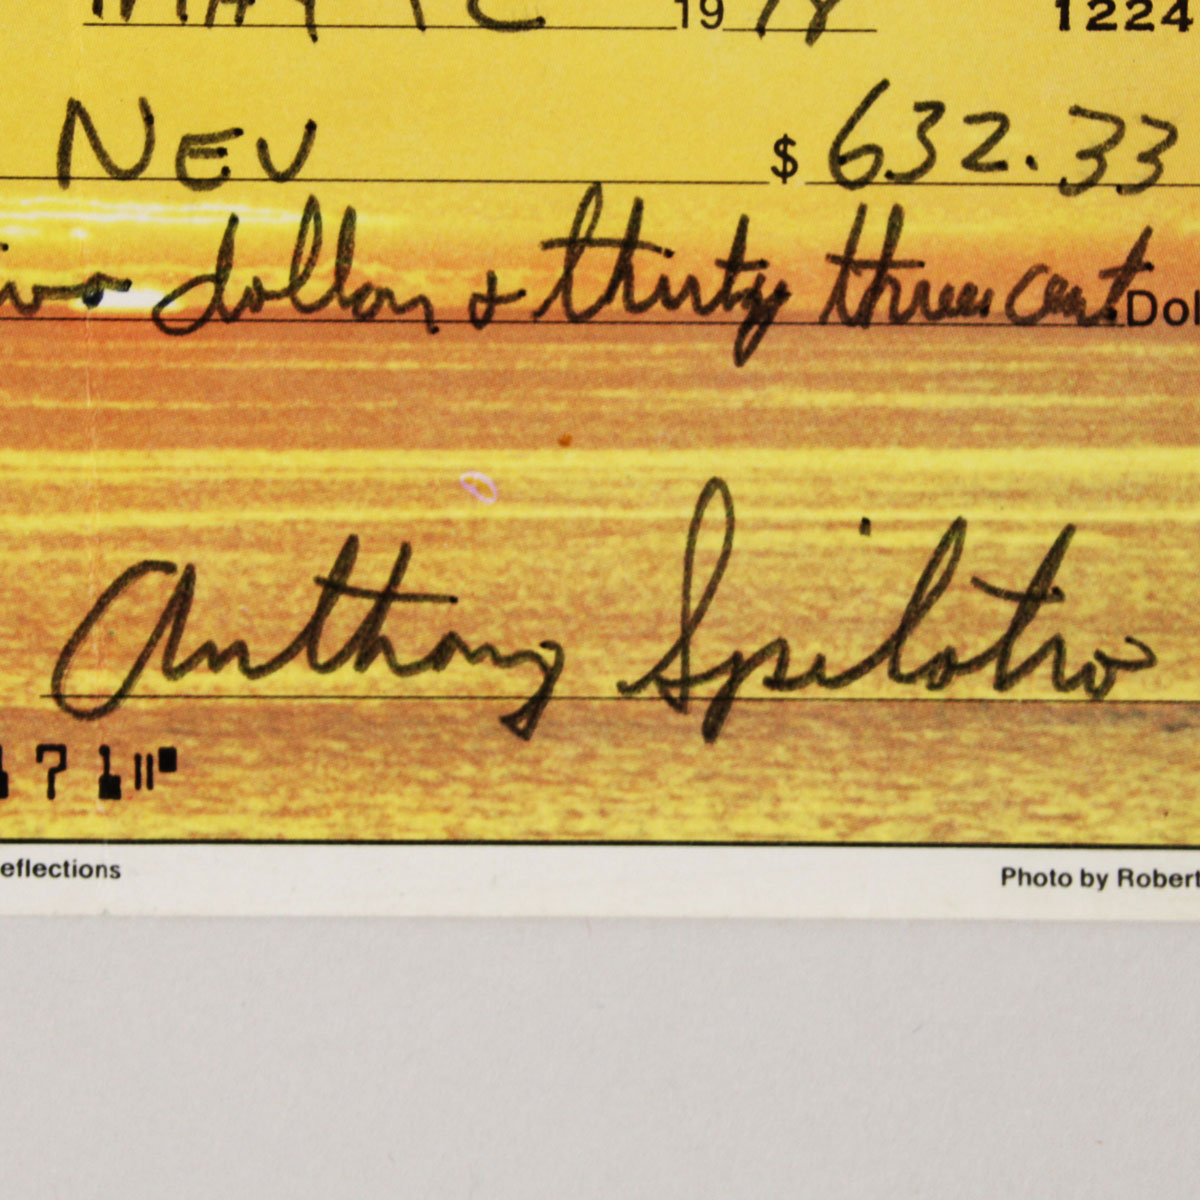 MAY 12 1978 1224
NEV $ 632.33
two dollars & thirty three cents Dol
Anthony Spilotro
171⑈
eflections Photo by Robert